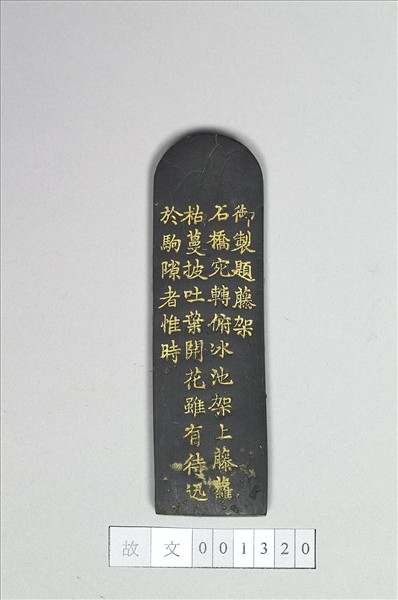 御製題藤架
石橋宛轉俯冰池架上藤蘿
枯蔓披吐葉開花雖有待迅
於駒隙者惟時
故文001320